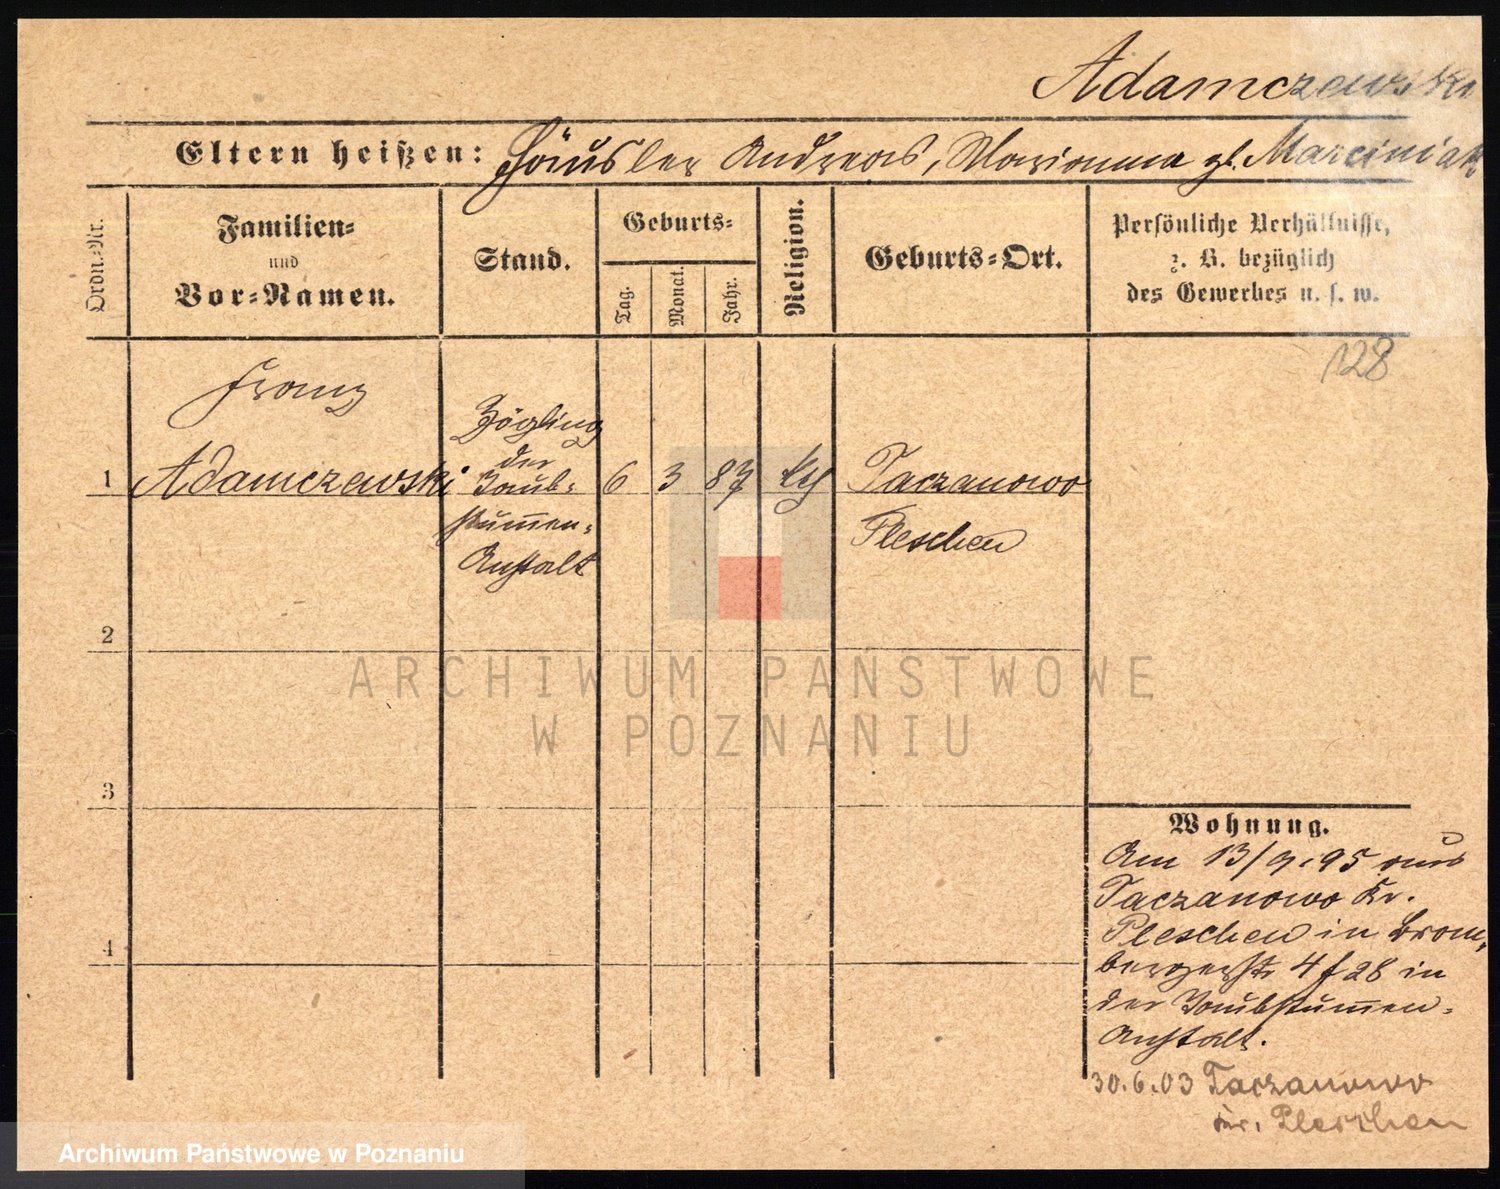 Adamczewski
Eltern heißen: Häusler Andreas, Marianna gb. Marciniak
Ordn.-Nr.
Familien-
und
Vor-Namen.
Stand.
Geburts-
Tag.
Monat.
Jahr.
Religion.
Geburts-Ort.
Persönliche Verhältnisse,
z. B. bezüglich
des Gewerbes u. s. w.
128
Franz
1 Adamczewski
Zögling
der
Taub-
stummen-
Anstalt
6 3 87 kth
Taczanowo
Pleschen
2
3
4
ARCHIWUM PAŃSTWOWE
W POZNANIU
Wohnung.
Am 13/9.95 aus
Taczanowo Kr.
Pleschen in Brom-
bergerstr 4 f 28 in
der Taubstummen-
Anstalt.
30.6.03 Taczanowo
Kr. Pleschen
Archiwum Państwowe w Poznaniu